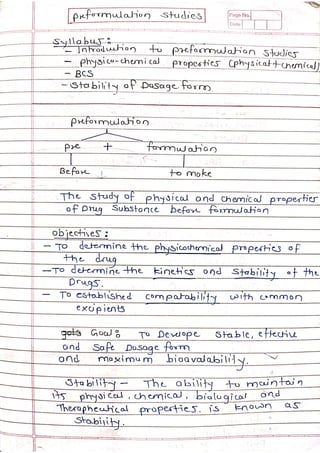 preformulation studies
Page No.
Date
Syllabus:
- Introduction to preformulation studies
- physico-chemical properties (physical + chemical)
- BCS
- Stability of Dosage form
preformulation
pre + formulation
Before to make
The study of physical and chemical properties
of Drug Substance before formulation
objectives:
- To determine the physicochemical properties of
the drug
- To determine the kinetics and stability of the
Drugs.
- To established compatability with common
excipients
Goal: To Develope stable, effective
and safe Dosage form
and maximum bioavalability.
Stability - The ability to maintain
its physical, chemical, biological and
Therapheutical properties. is known as
Stability.